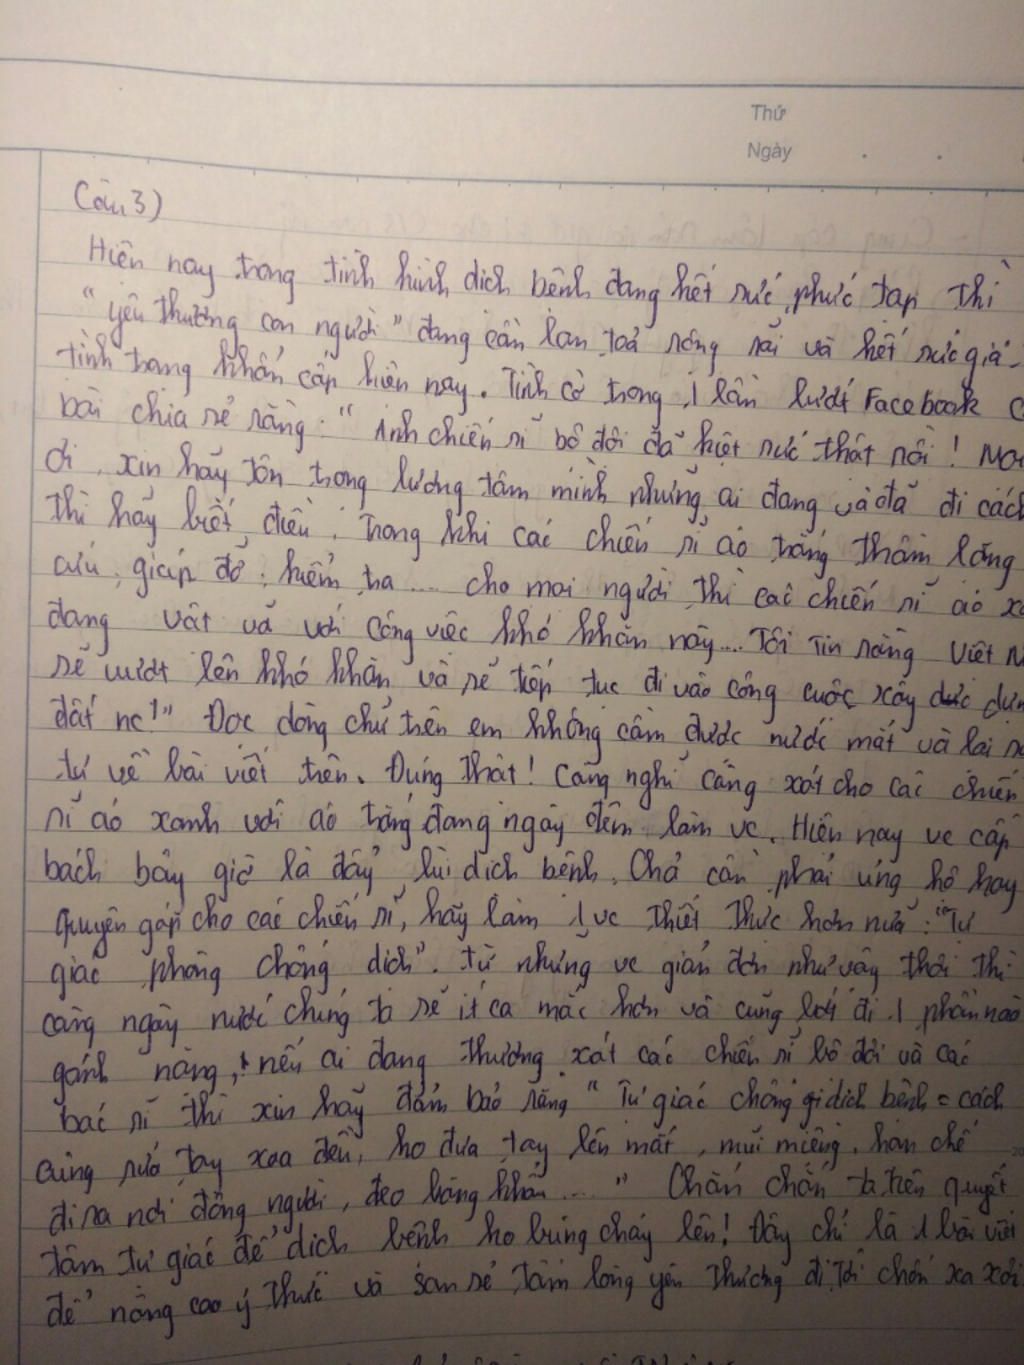 Thứ
Ngày
Câu 3)
Hiện nay trong tình hình dịch bệnh đang hết sức phức tạp thì
"yêu thương con người" đang cần lan toả rộng rãi và hết sức giá
tình trạng khẩn cấp hiện nay. Tình cờ trong 1 lần lướt Facebook
bài chia sẻ rằng: "Anh chiến sĩ bộ đội đã kiệt sức thật rồi!
ơi, xin hãy tôn trọng lương tâm mình những ai đang và đã đi cách
thì hãy biết điều. Trong khi các chiến sĩ áo trắng thầm lặng
cứu, giúp đỡ, kiểm tra .... cho mọi người thì các chiến sĩ áo
đang vật vã với công việc khó khăn này.... Tôi tin rằng Việt
sẽ vượt lên khó khăn và sẽ tiếp tục đi vào công cuộc xây
đất nc!" Đọc dòng chữ trên em không cầm được nước mắt và lại
tư về bài viết trên. Đúng thật! Càng nghĩ càng xót cho các chiến
sĩ áo xanh với áo trắng đang ngày đêm làm vc. Hiện nay vc cấp
bách bây giờ là đẩy lùi dịch bệnh. Chả cần phải ủng hộ hay
quyên góp cho các chiến sĩ, hãy làm 1 vc thiết thực hơn nữa: "Tự
giác phòng chống dịch". Từ những vc giản đơn như vậy thôi thì
càng ngày nước chúng ta sẽ ít ca mắc hơn và cũng bớt đi 1 phần nào
gánh nặng, nếu ai đang thương xót các chiến sĩ bộ đội và các
bác sĩ thì xin hãy đảm bảo rằng "Tự giác chống dịch bệnh = cách
cùng rửa tay xoa đều, ko đưa tay lên mắt, mũi miệng, hạn chế
đi ra nơi đông người, đeo băng khẩu ...." Chắn chắn ta trên quyết
tâm tự giác để dịch bệnh ko bùng cháy lên! Đây chỉ là 1 bài viết
để nâng cao ý thức và san sẻ tấm lòng yêu thương đi tới chốn xa xôi